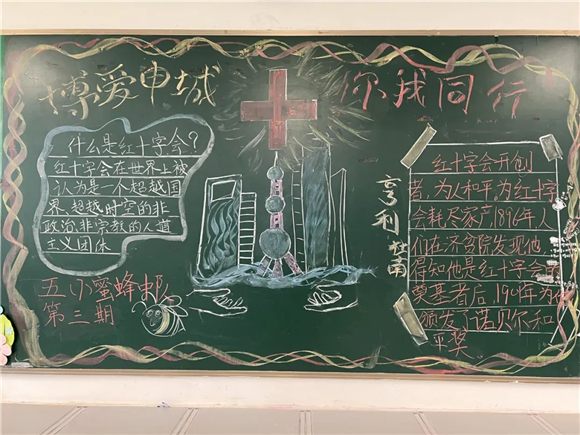 博爱申城
你我同行
什么是红十字会?
红十字会在世界上被
认为是一个超越国
界、超越时空的非
政治、非宗教的人道
主义团体
五(1)小蜜蜂中队
第三期
亨利杜南
红十字会开创
者,为人和平,为红十字
会耗尽家产,1896年人
们在济贫院发现他,
得知他是红十字会的
奠基者后,1901年为他
颁发了诺贝尔和
平奖